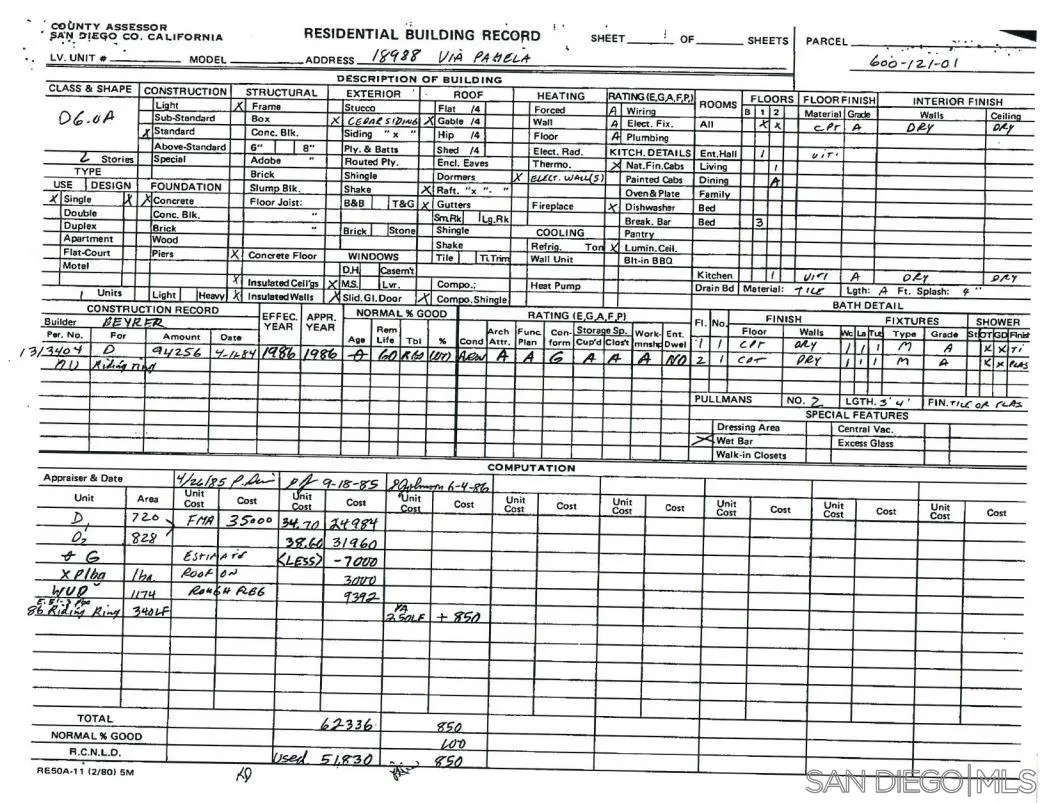 COUNTY ASSESSOR
SAN DIEGO CO. CALIFORNIA
RESIDENTIAL BUILDING RECORD
SHEET 1 OF SHEETS
PARCEL
600-121-01
LV. UNIT # MODEL ADDRESS 18988 VIA PAMELA
DESCRIPTION OF BUILDING
CLASS & SHAPE
D6.0A
2 Stories
TYPE
USE DESIGN
X Single X
Double
Duplex
Apartment
Flat-Court
Motel
1 Units
CONSTRUCTION
Light
Sub-Standard
X Standard
Above-Standard
Special
FOUNDATION
X Concrete
Conc. Blk.
Brick
Wood
Piers
Light Heavy
STRUCTURAL
X Frame
Box
Conc. Blk.
6" 8"
Adobe "
Brick
Slump Blk.
Floor Joist:
"
"
X Concrete Floor
X Insulated Ceil'gs
X Insulated Walls
EXTERIOR
Stucco
X CEDAR SIDING
Siding "x "
Ply. & Batts
Routed Ply.
Shingle
Shake
B&B T&G
Brick Stone
WINDOWS
D.H. Casem't
X M.S. Lvr.
X Slid. Gl. Door
ROOF
Flat /4
X Gable /4
Hip /4
Shed /4
Encl. Eaves
Dormers
X Raft. "x "- "
X Gutters
Sm.Rk Lg.Rk
Shingle
Shake
Tile Ti.Trim
Compo.;
X Compo.Shingle
HEATING
Forced
Wall
Floor
Elect. Rad.
Thermo.
X ELECT. WALL(S)
Fireplace
COOLING
Refrig. Ton
Wall Unit
Heat Pump
RATING (E,G,A,F,P)
A Wiring
A Elect. Fix.
A Plumbing
KITCH. DETAILS
X Nat.Fin.Cabs
Painted Cabs
Oven & Plate
X Dishwasher
Break. Bar
Pantry
X Lumin. Ceil.
Blt-in BBQ
ROOMS FLOORS FLOOR FINISH INTERIOR FINISH
B 1 2 Material Grade Walls Ceiling
All X X CPT A DRY DRY
Ent. Hall 1
Living 1
Dining A
Family
Bed
Bed 3
Kitchen 1 A DRY DRY
Drain Bd Material: TILE Lgth: A Ft. Splash: 4"
CONSTRUCTION RECORD
Builder BEYRER
Per. No. For Amount Date
1313404 D 94256
Riding ring
EFFEC. YEAR
1986
APPR. YEAR
1986
NORMAL % GOOD
Age Rem Life Tbl %
0 60 R60 100
RATING (E,G,A,F,P)
Cond Arch Attr. Func. Plan Con-form Storage Sp. Cup'd Clos't Work-mnshp Ent. Dwel
A A G A A A NO
BATH DETAIL
Fl. No. FINISH FIXTURES SHOWER
Floor Walls Wc La Tub Type Grade St OT GD Finish
1 1 CPT DRY 1 1 1 M A X X TI
2 1 CPT DRY 1 1 1 M A X X PLAS
PULLMANS NO. 2 LGTH. 3' 4' FIN. TILE OR PLAS
SPECIAL FEATURES
Dressing Area Central Vac.
X Wet Bar Excess Glass
Walk-in Closets
COMPUTATION
Appraiser & Date 4/26/85 9-18-85 6-4-86
Unit Area Unit Cost Cost Unit Cost Cost Unit Cost Cost Unit Cost Cost Unit Cost Cost Unit Cost Cost Unit Cost Cost Unit Cost
D1 720 FMA 35000 34.70 24984
D2 828 38.60 31960
G ESTIMATE (LESS) -7000
1ba. ROOF ON 3000
WUD 1174 ROUGH 9392
86 Riding Ring 340LF 2.50LF + 850
TOTAL 62336 850
NORMAL % GOOD 100
R.C.N.L.D. used 51,830 850
RE50A-11 (2/80) 5M
SAN DIEGO|MLS